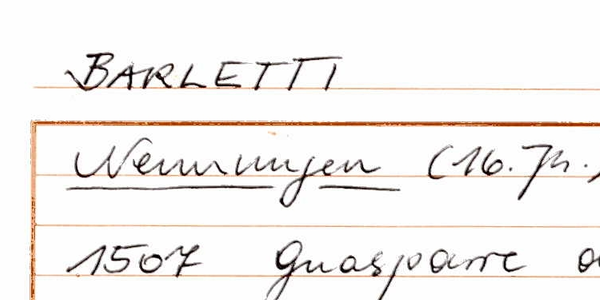 BARLETTI
Nennungen (16. Jh.)
1507 Guasparre